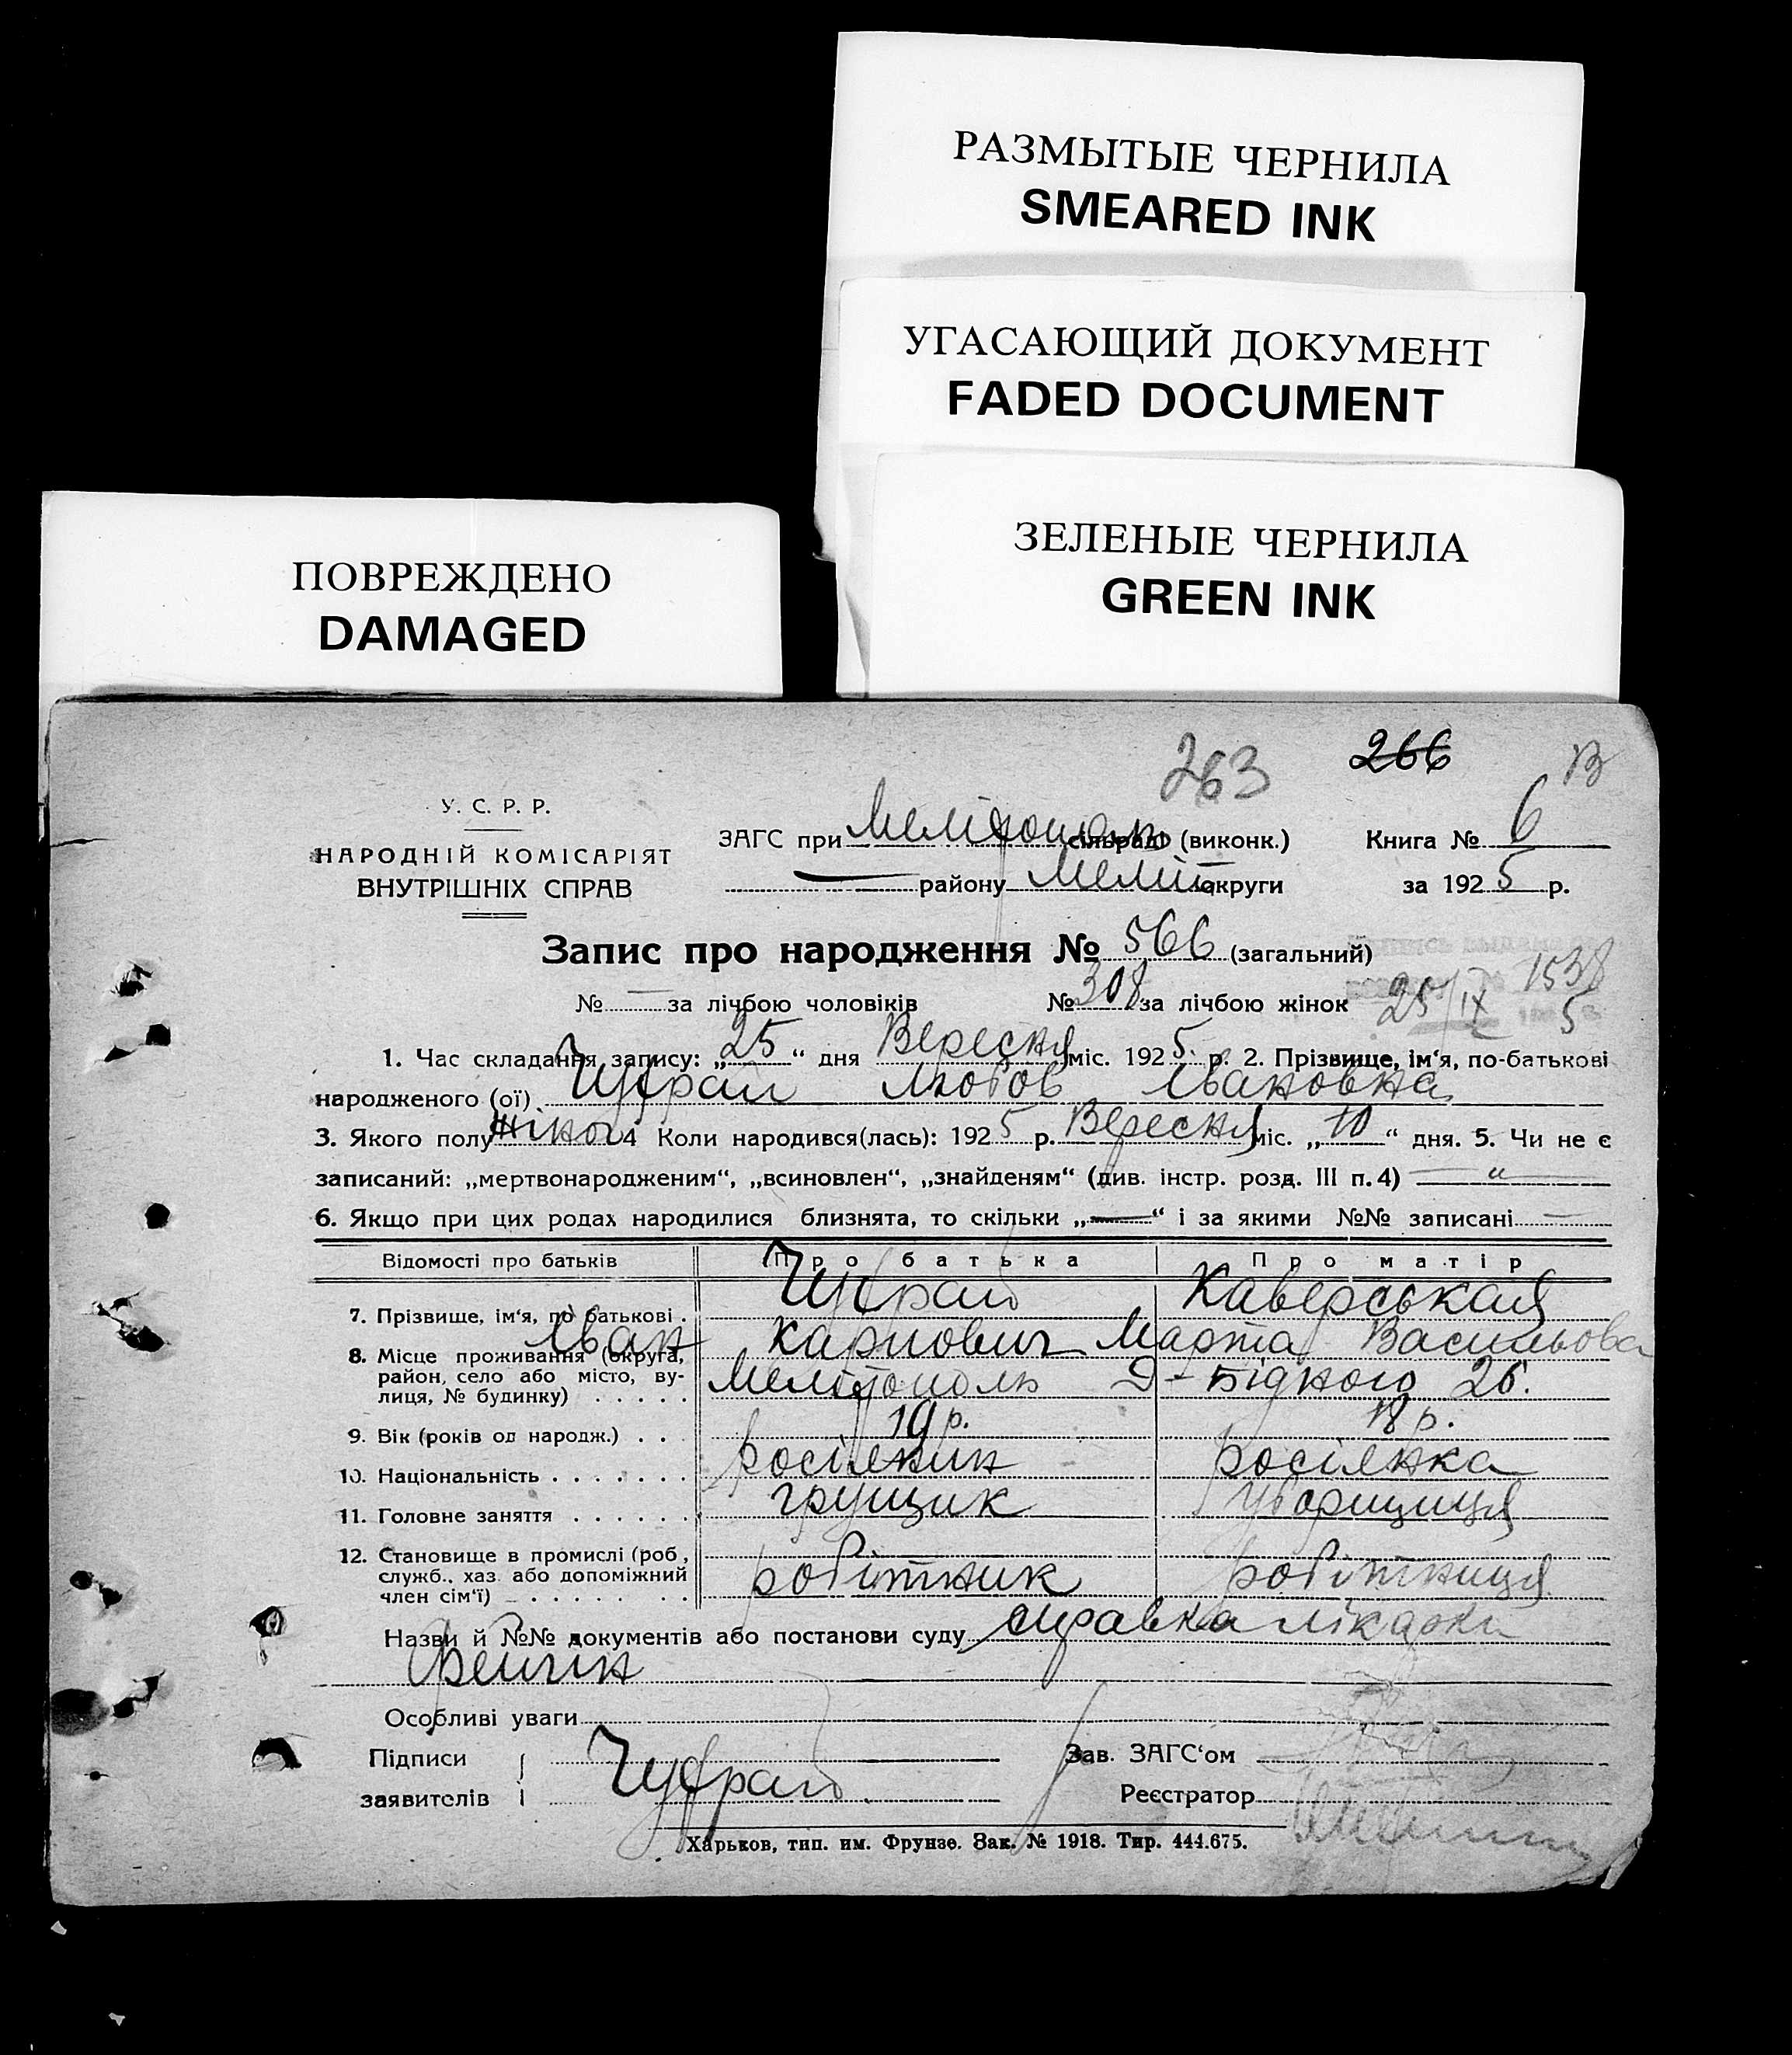 РАЗМЫТЫЕ ЧЕРНИЛА
SMEARED INK
УГАСАЮЩИЙ ДОКУМЕНТ
FADED DOCUMENT
ЗЕЛЕНЫЕ ЧЕРНИЛА
GREEN INK
ПОВРЕЖДЕНО
DAMAGED
263 266 В
У. С. Р. Р.
НАРОДНІЙ КОМІСАРІЯТ
ВНУТРІШНІХ СПРАВ
ЗАГС при Мелітополь сільраді (виконк.) Книга № 6
— району Меліт округи за 1925 р.
Запис про народження № 566 (загальний)
№ — за лічбою чоловіків № 308 за лічбою жінок
1538
25/IX 5
1. Час складання запису: „25“ дня Вересня міс. 1925 р. 2. Прізвище, ім‘я, по-батькові
народженого (ої) Чуфрай Любов Івановна
3. Якого полу жіноч 4 Коли народився(лась): 1925 р. Вересня міс. „10“ дня. 5. Чи не є
записаний: „мертвонародженим“, „всиновлен“, „знайденям“ (див. інстр. розд. III п. 4) — „ —
6. Якщо при цих родах народилися близнята, то скільки „—“ і за якими №№ записані —
Відомості про батьків Про батька Про матір
7. Прізвище, ім‘я, по батькові . Чуфрай Каверськая
Іван Карпович Марта Васильова
8. Місце проживання (округа,
район, село або місто, ву-
лиця, № будинку) . . . . . Мелітополь Д-Бідного 26.
9. Вік (років од народж.) . . . 19 р. 18 р.
10. Національність . . . . . . . росіянин росіянка
11. Головне заняття . . . . . . грущик уборщиця
12. Становище в промислі (роб.,
служб., хаз. або допоміжний
член сім‘ї) робітник робітниця
Назви й №№ документів або постанови суду справка лікарки
Фейгін
Особливі уваги
Підписи Зав. ЗАГС‘ом
заявителів Чуфрай Реєстратор
Харьков, тип. им. Фрунзе. Зак. № 1918. Тир. 444.675.